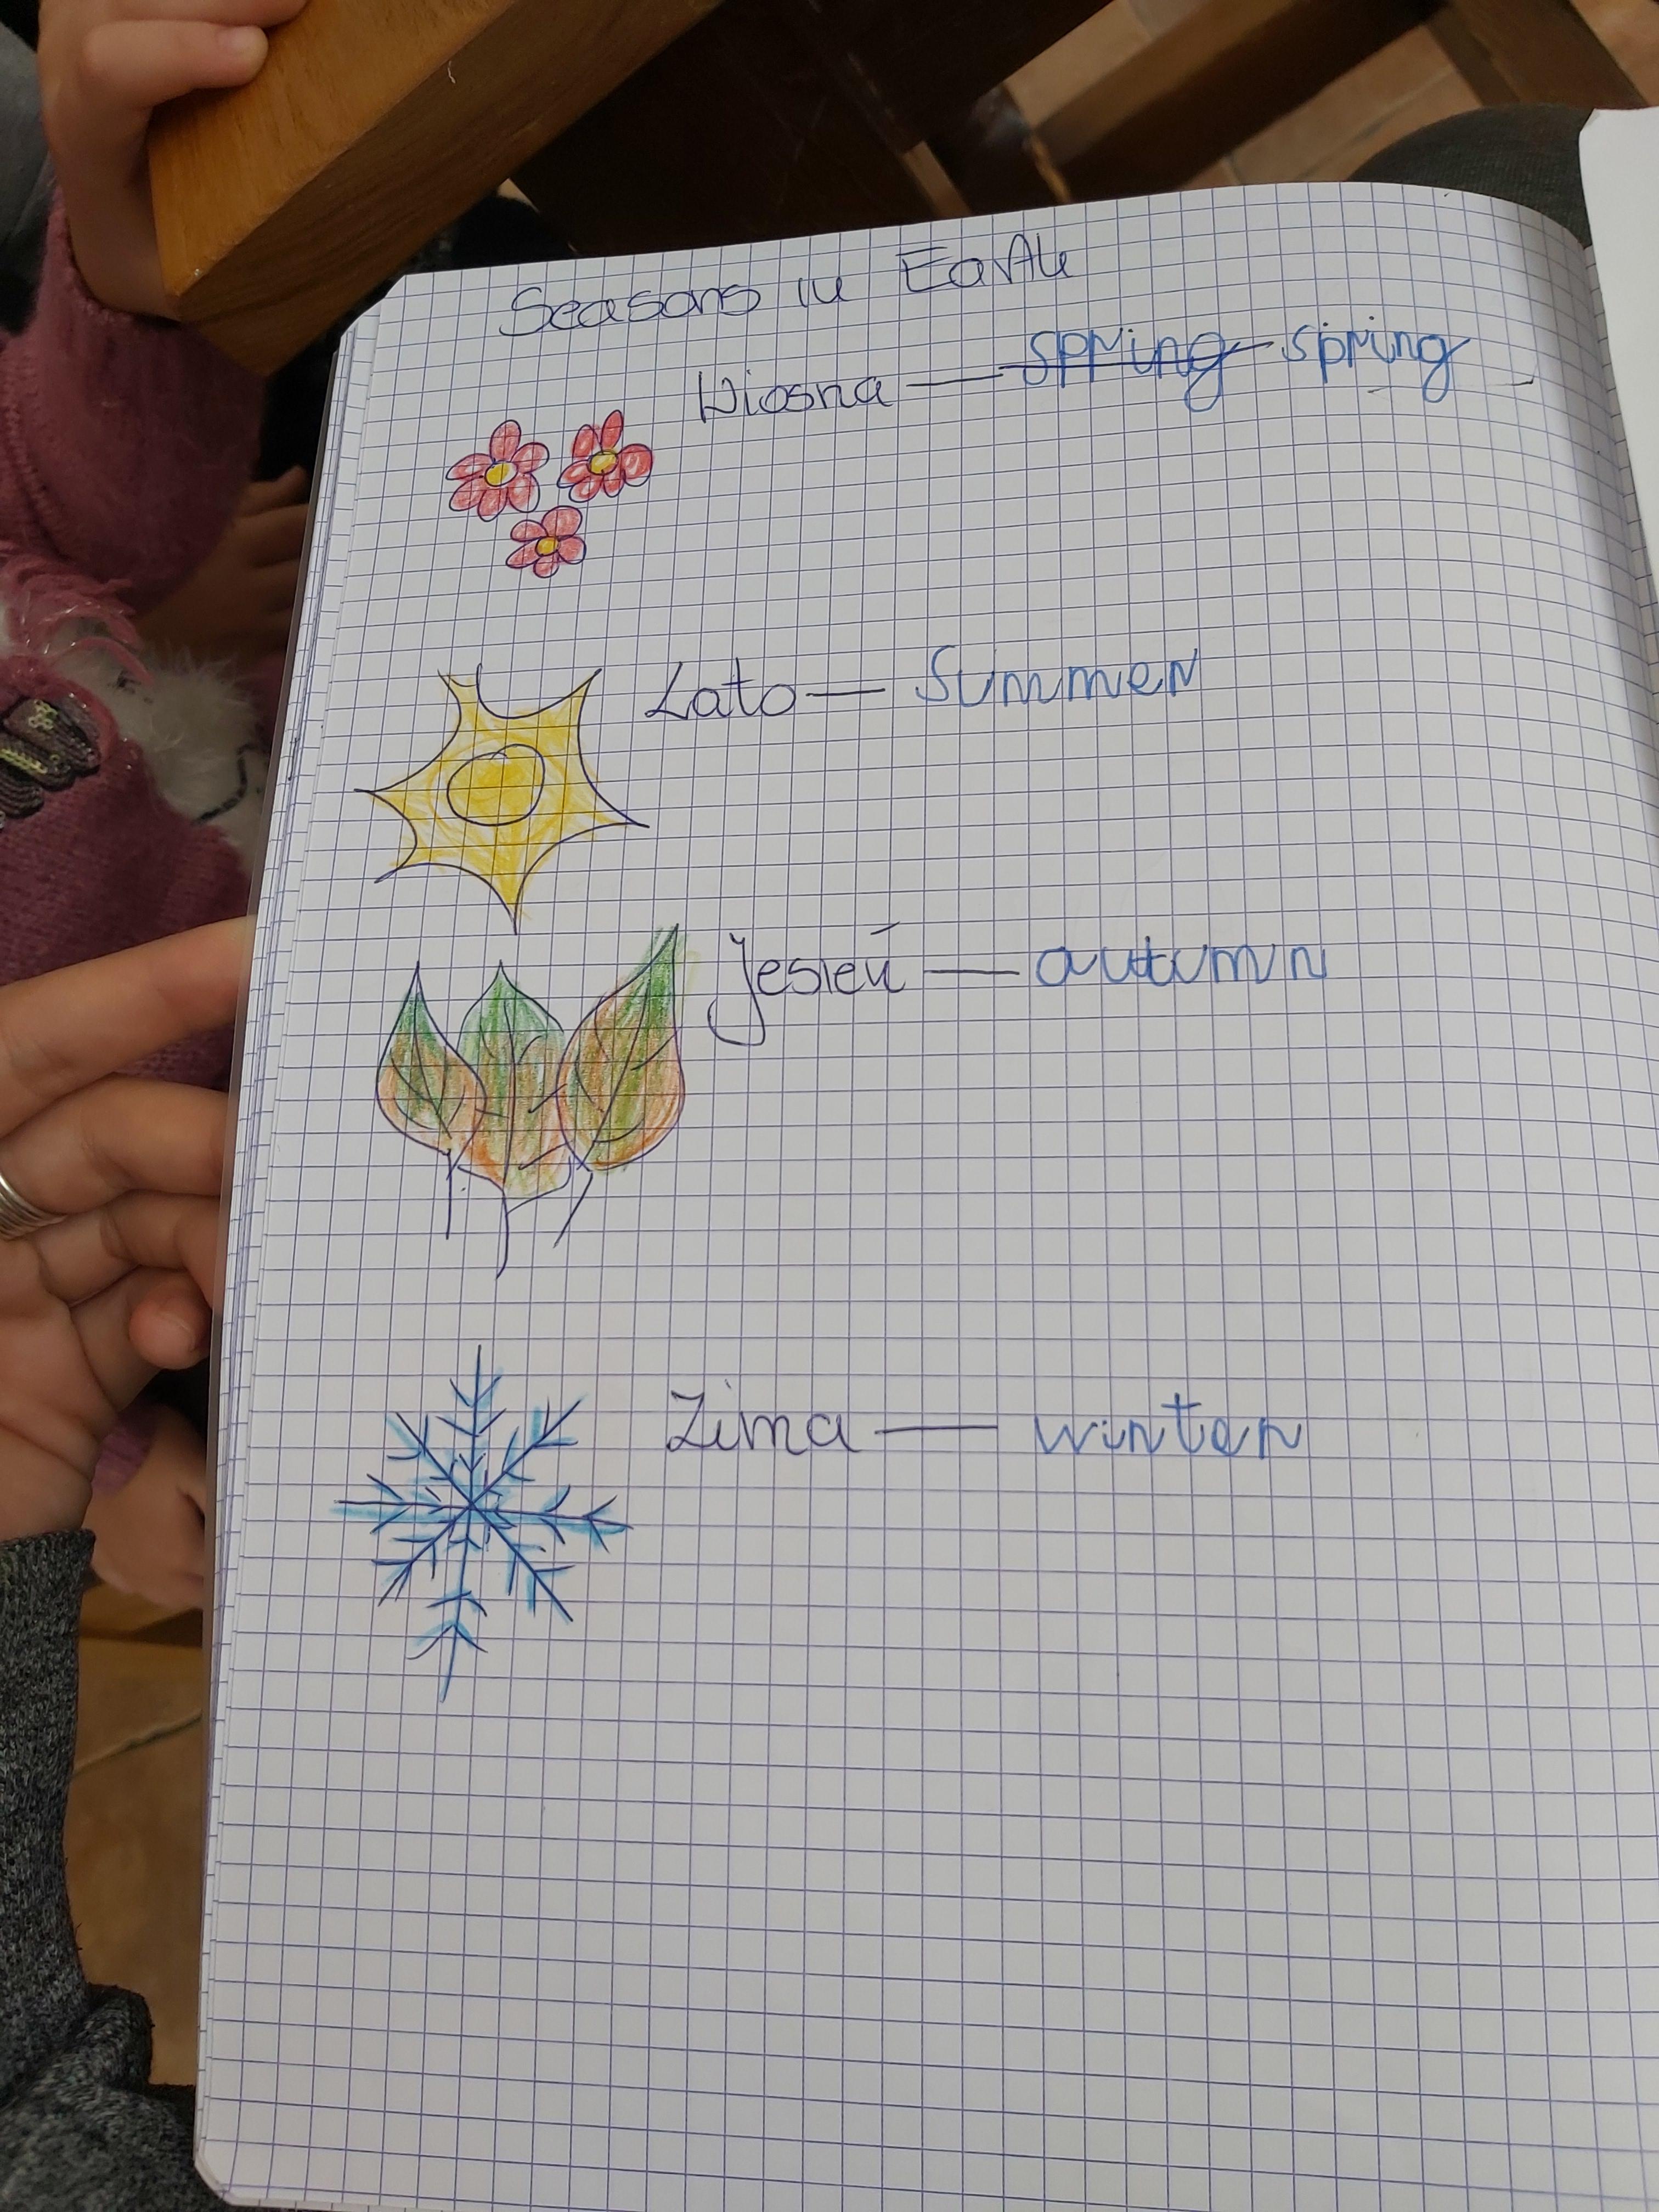 Seasons in Earth
Wiosna — spring spring
Lato — Summer
Jesień — autumn
Zima — winter